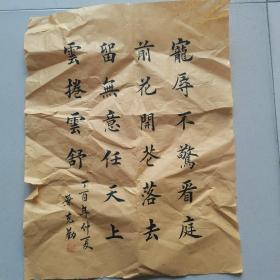 寵辱不驚看庭
前花開花落去
留無意任天上
雲捲雲舒
丁酉年仲夏